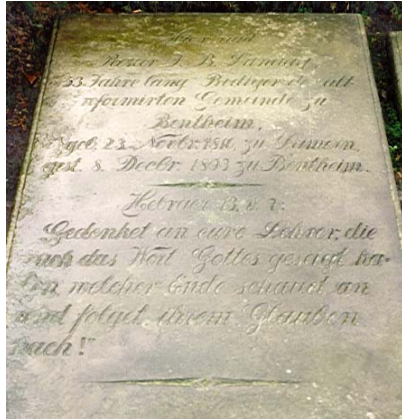 Hier ruht
Pastor J. B.
33 Jahre lang Prediger der alt
reformirten Gemeinde zu
Bentheim,
geb. 23. Novbr. zu
gest. 8. Decbr. 1893 zu Bentheim.
Hebraer 13. v. 7:
Gedenket an eure Lehrer, die
euch das Wort Gottes gesagt ha-
ben welcher Ende schauet an
und folget ihrem Glauben
nach!"